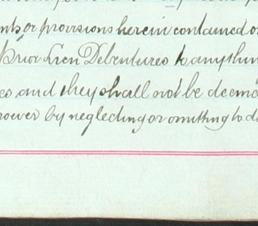 nts, or provisions herein contained or
Prior Lien Debentures to anythin
es and they shall not be deeme
power by neglecting or omitting to d